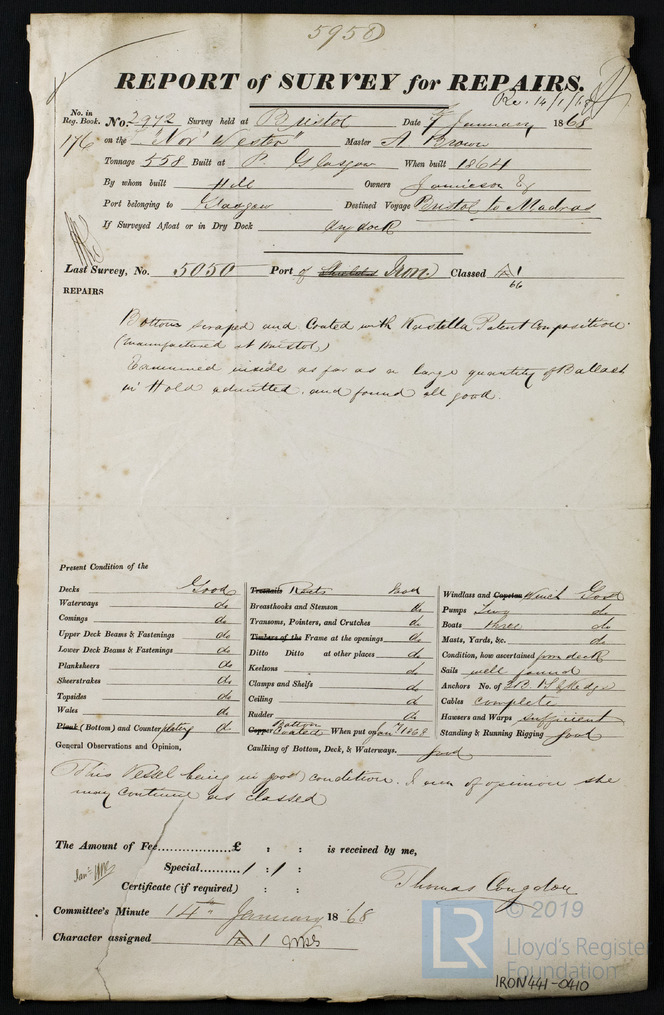 5950
REPORT of SURVEY for REPAIRS.
Re. 14/1/68
No. in Reg. Book. No. 2972 Survey held at Bristol Date 7 January 1868
176 on the "Nor' Wester" Master A Brown
Tonnage 558 Built at P. Glasgow When built 1864
By whom built Hill Owners Jamieson &
Port belonging to Glasgow Destined Voyage Bristol to Madras
If Surveyed Afloat or in Dry Dock dry dock
Last Survey, No. 5050 Port of Shields Iron Classed A 1
66
REPAIRS
Bottom scraped and Coated with Rastella Patent Composition
(manufactured at Bristol)
Examined inside as far as a large quantity of Ballast
in Hold admitted, and found all good.
Present Condition of the
Decks Good
Waterways do
Comings do
Upper Deck Beams & Fastenings do
Lower Deck Beams & Fastenings do
Planksheers do
Sheerstrakes do
Topsides do
Wales do
Plank (Bottom) and Counter plating do
General Observations and Opinion,
Treenails Rivets Good
Breasthooks and Stemson do
Transoms, Pointers, and Crutches do
Timbers of the Frame at the openings do
Ditto Ditto at other places do
Keelsons do
Clamps and Shelfs do
Ceiling do
Rudder do
Copper Bottom Coated When put on Jany 1868
Caulking of Bottom, Deck, & Waterways. good
Windlass and Capstan Winch Good
Pumps Two do
Boats three do
Masts, Yards, &c. do
Condition, how ascertained from deck
Sails well found
Anchors No. of 3 B. 1 S & Kedge
Cables complete
Hawsers and Warps sufficient
Standing & Running Rigging good
This Vessel being in good condition. I am of opinion she
may continue as classed
The Amount of Fee £ : : is received by me,
Special 1 : 1 :
Certificate (if required) : :
Thomas Congdon
Committee's Minute 14th January 1868
Character assigned A 1
© 2019
LR
Lloyd's Register
Foundation
IRON441-0410